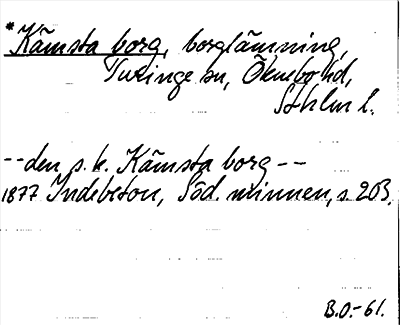 *Kämsta borg, borglämning,
Turinge sn, Öknebo hd,
Sthlm l.
--den s.k. Kämsta borg--
1877 Indebetou, Söd. minnen, s. 203.
B.O.-61.